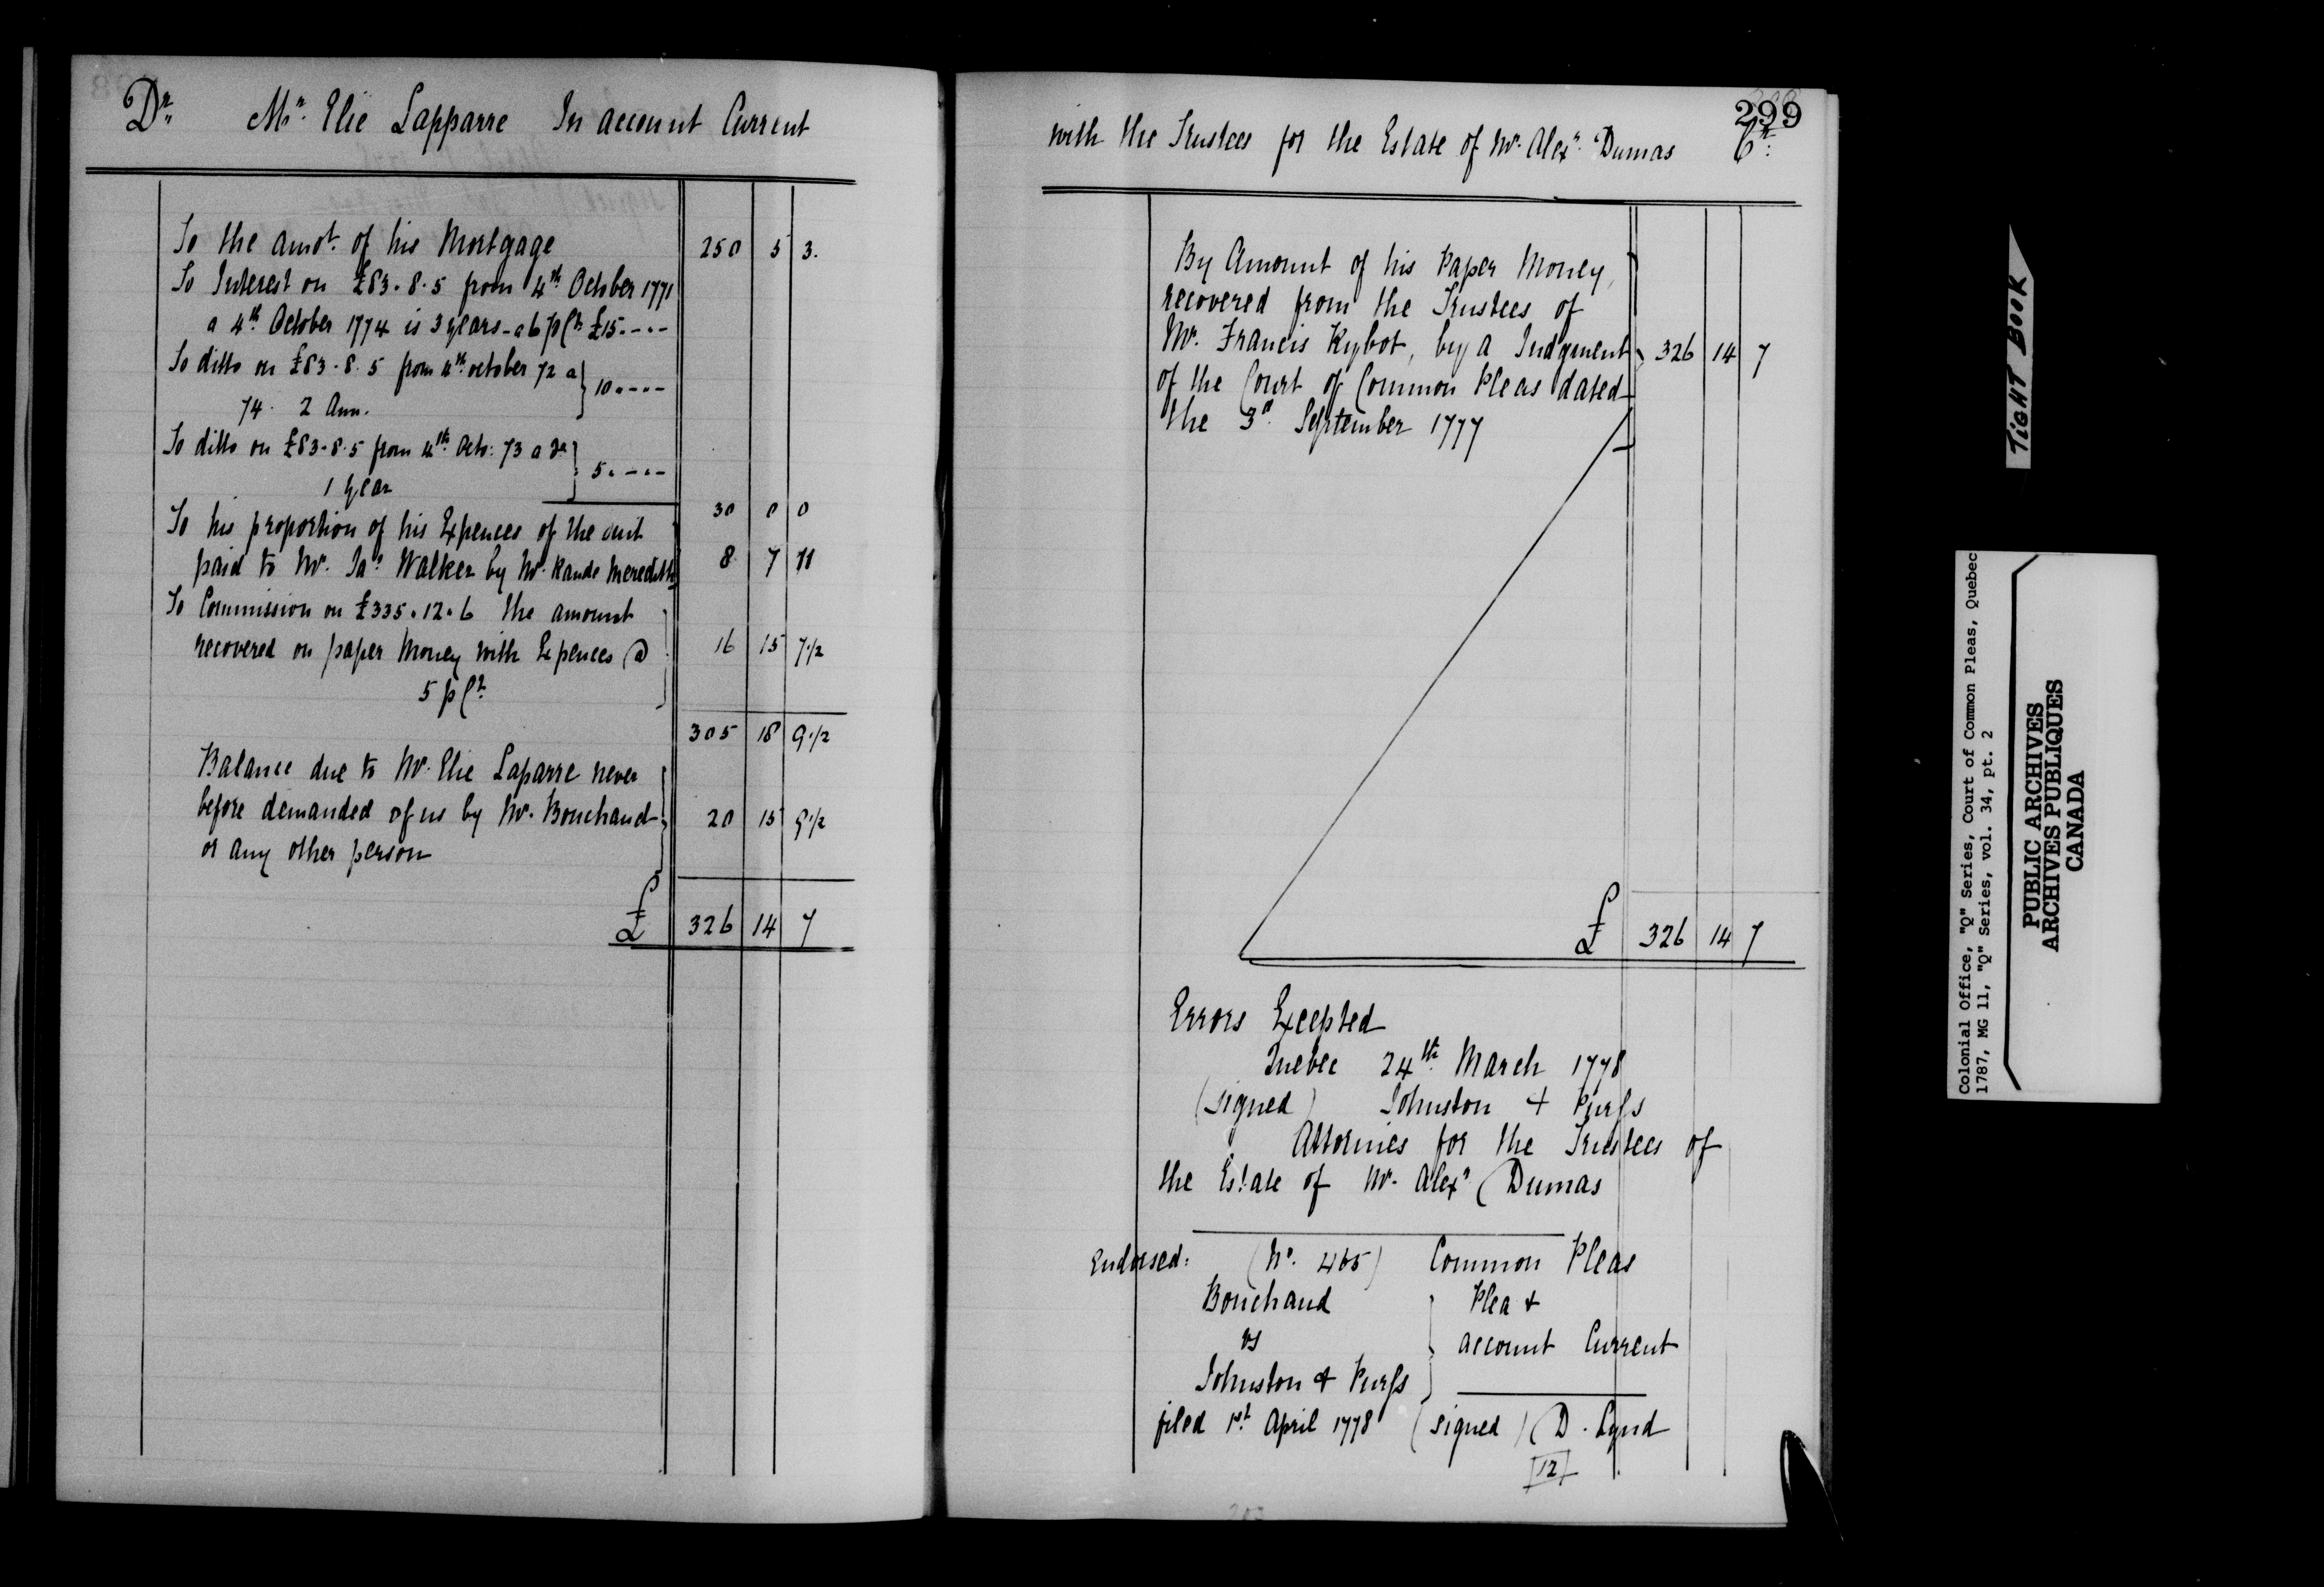 Dr. Mr. Elie Lapparre In account Current
To the amot. of his Mortgage 250 5 3.
To Interest on £83.8.5 from 4th October 1771
a 4th October 1774 is 3 years - a 6 p Ct £15.-.-
To ditto on £83.8.5 from 4th october 72 a
74. 2 Ann. 10.-.-
To ditto on £83.8.5 from 4th Octo: 73 a do
1 year 5.-.-
30 0 0
To his proportion of his Expences of the suit
paid to Mr. Jas Walker by Mr. Rande Meredith 8 7 11
To Commission on £335.12.6 the amount
recovered on paper Money with Expences @ 16 15 7 1/2
5 p Ct.
305 18 9 1/2
Balance due to Mr. Elie Laparre never
before demanded of us by Mr. Bouchaud 20 15 9 1/2
or any other person
£ 326 14 7
299
with the Trustees for the Estate of Mr. Alexr. Dumas Cr.
By Amount of his Paper Money,
recovered from the Trustees of
Mr. Francis Rybot, by a Judgment 326 14 7
of the Court of Common Pleas dated
the 3d September 1777
£ 326 14 7
Errors Excepted
Quebec 24th March 1778
(signed) Johnston + Purss
Attornies for the Trustees of
the Estate of Mr. Alexr Dumas
Endorsed: (No. 465) Common Pleas
Bouchaud Plea +
vs account Current
Johnston + Purss
filed 1st April 1778 (signed) D. Lynd
[12]
TIGHT BOOK
Colonial Office, "Q" Series, Court of Common Pleas, Quebec
1787, MG 11, "Q" Series, vol. 34, pt. 2
PUBLIC ARCHIVES
ARCHIVES PUBLIQUES
CANADA